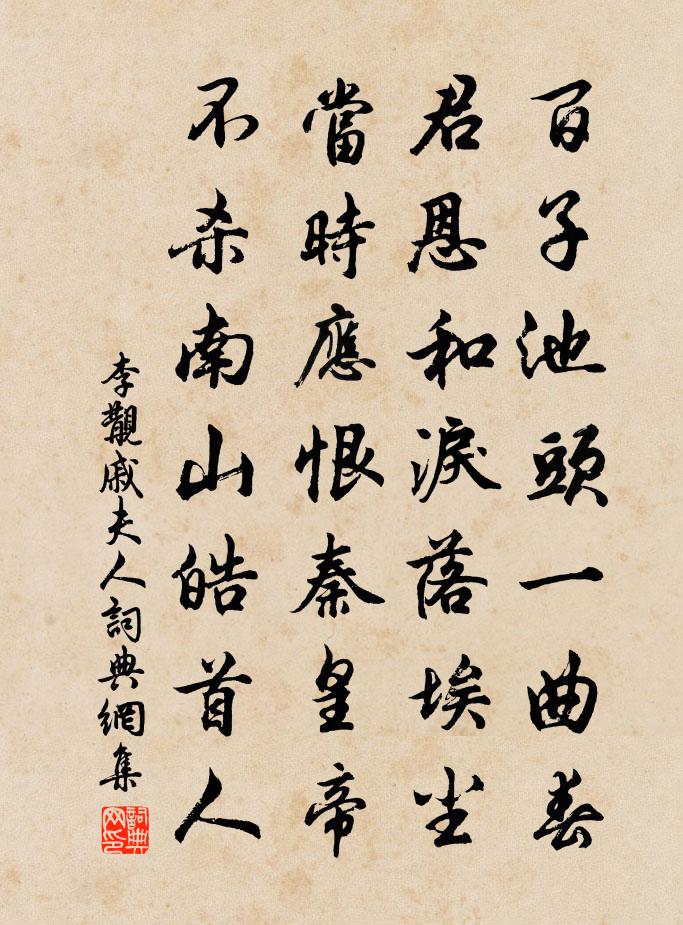 百子池頭一曲春
君恩和淚落埃尘
當時應恨秦皇帝
不杀南山皓首人
李觀戚夫人詞典網集
詞典网印